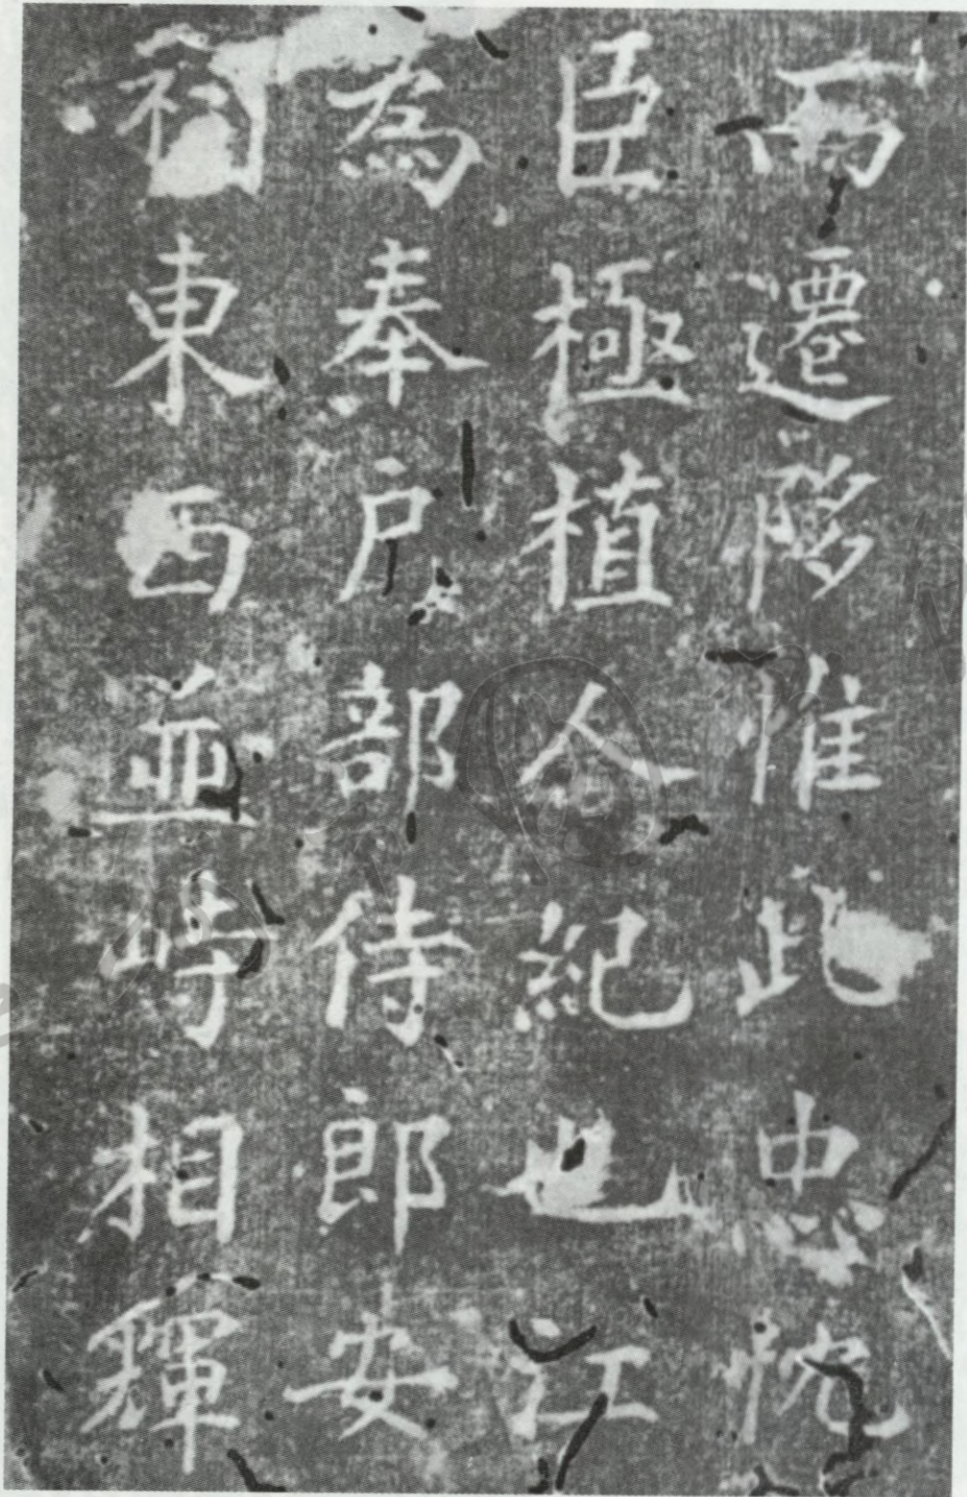 而遷陊惟此忠忱
臣極植人紀也江
為奉户部侍郎安
祠東西並峙相輝